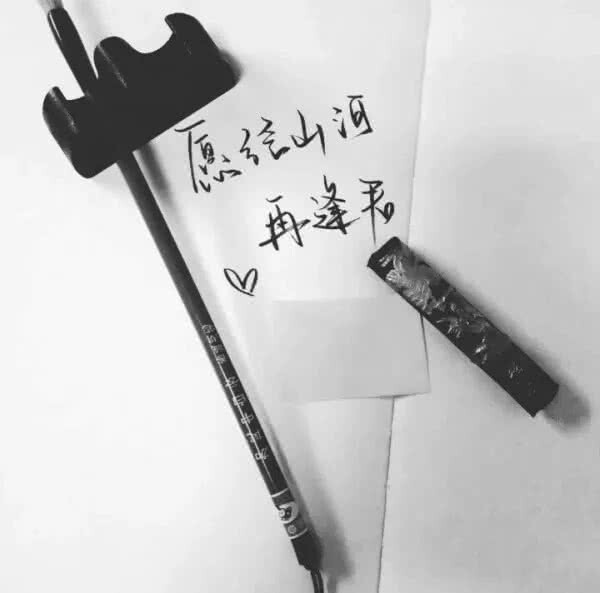 愿绘山河
再逢君